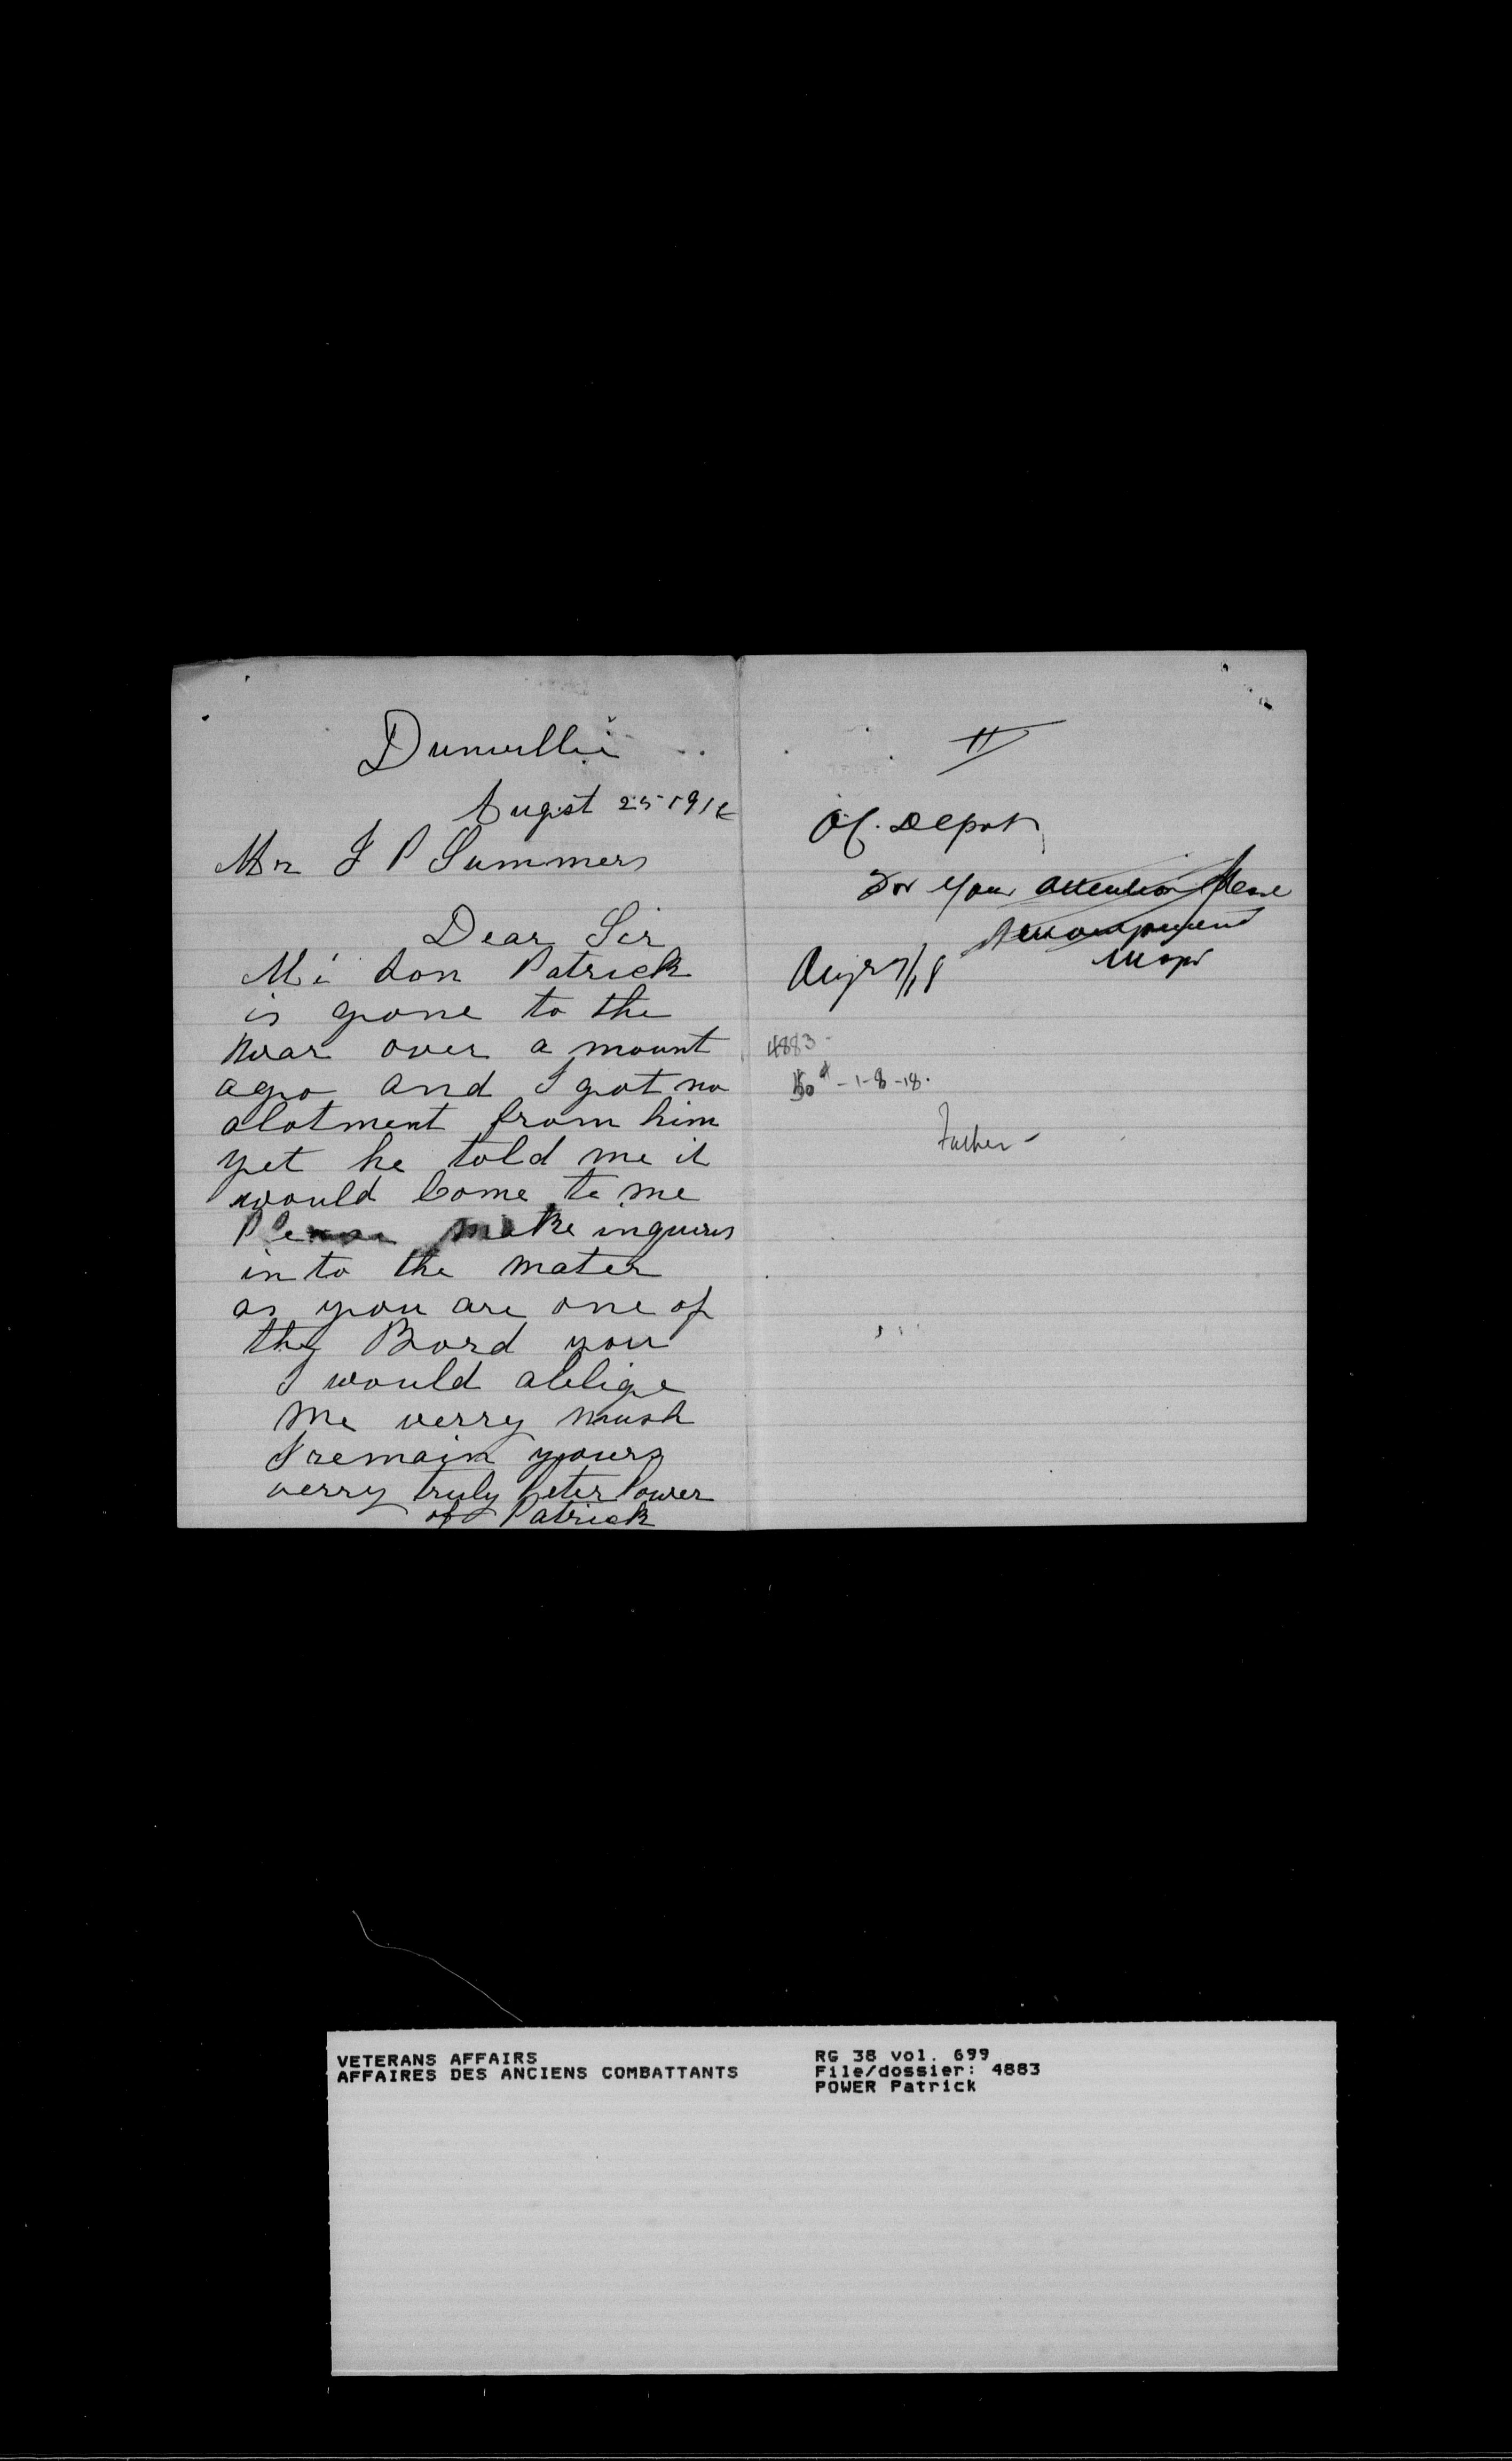 Dunvillei
Augist 25 1918
Mr J P Summers
Dear Sir
Mi son Patrick
is gone to the
war over a mount
ago and I got no
alotment from him
yet he told me it
would come to me
Please make inquires
in to the mater
as you are one of
the Bord you
would oblige
me verry mush
I remain yours
verry truly Peter Power
of Patrick
II
O/C. Depot
For your attention please
Major
Aug 27/18
4883 -
- 1-8-18.
Father -
VETERANS AFFAIRS
AFFAIRES DES ANCIENS COMBATTANTS
RG 38 vol. 699
File/dossier: 4883
POWER Patrick